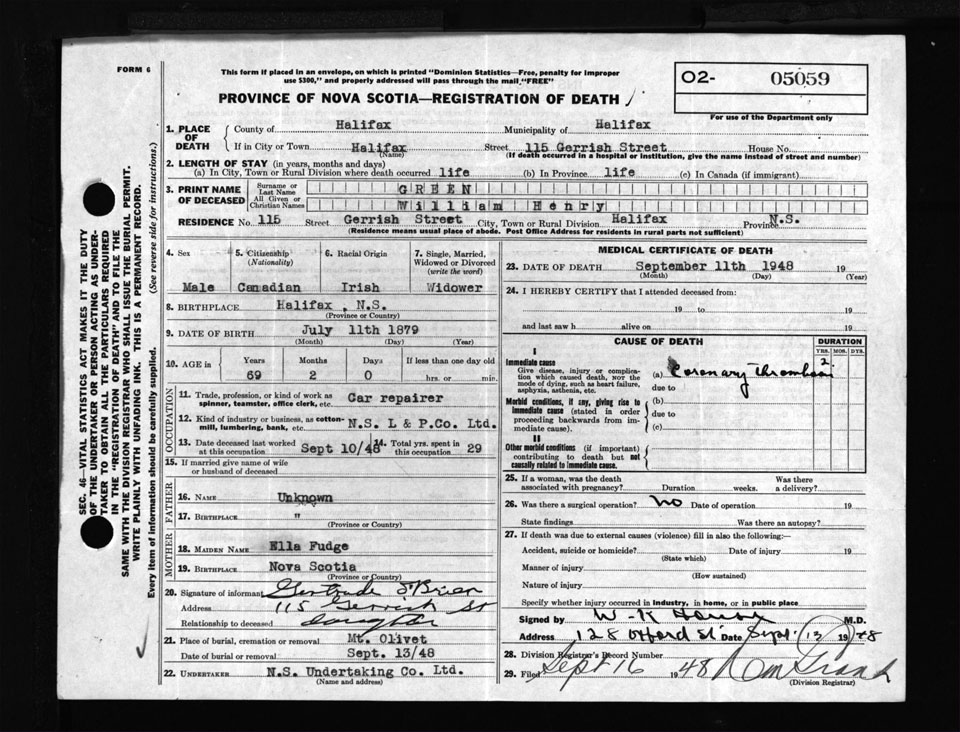 FORM 6
This form if placed in an envelope, on which is printed "Dominion Statistics—Free, penalty for improper
use $300," and properly addressed will pass through the mail "FREE"
PROVINCE OF NOVA SCOTIA—REGISTRATION OF DEATH
02- 05059
For use of the Department only
1. PLACE OF DEATH County of Halifax Municipality of Halifax
If in City or Town Halifax Street 115 Gerrish Street House No.
(Name) (If death occurred in a hospital or institution, give the name instead of street and number)
2. LENGTH OF STAY (in years, months and days)
(a) In City, Town or Rural Division where death occurred life (b) In Province life (c) In Canada (if immigrant)
3. PRINT NAME OF DECEASED Surname or Last Name GREEN
All Given or Christian Names William Henry
RESIDENCE No. 115 Street Gerrish Street City, Town or Rural Division Halifax Province N.S.
(Residence means usual place of abode. Post Office Address for residents in rural parts not sufficient)
4. Sex 5. Citizenship (Nationality) 6. Racial Origin 7. Single, Married, Widowed or Divorced (write the word)
Male Canadian Irish Widower
8. BIRTHPLACE Halifax, N.S.
(Province or Country)
9. DATE OF BIRTH July 11th 1879
(Month) (Day) (Year)
10. AGE in Years Months Days If less than one day old
69 2 0 hrs. or min.
OCCUPATION
11. Trade, profession, or kind of work as spinner, teamster, office clerk, etc. Car repairer
12. Kind of industry or business, as cotton-mill, lumbering, bank, etc. N.S. L & P.Co. Ltd.
13. Date deceased last worked at this occupation Sept 10/48 14. Total yrs. spent in this occupation 29
15. If married give name of wife or husband of deceased
FATHER
16. NAME Unknown
17. BIRTHPLACE "
(Province or Country)
MOTHER
18. MAIDEN NAME Ella Fudge
19. BIRTHPLACE Nova Scotia
(Province or Country)
20. Signature of informant Gertrude O'Brien
Address 115 Gerrish St
Relationship to deceased daughter
21. Place of burial, cremation or removal Mt. Olivet
Date of burial or removal Sept. 13/48
22. UNDERTAKER N.S. Undertaking Co. Ltd.
(Name and address)
MEDICAL CERTIFICATE OF DEATH
23. DATE OF DEATH September 11th 1948 19
(Month) (Day) (Year)
24. I HEREBY CERTIFY that I attended deceased from:
19 to 19
and last saw h alive on 19
CAUSE OF DEATH DURATION
YRS. MOS. DYS.
I
Immediate cause
Give disease, injury or complication which caused death, NOT the mode of dying, such as heart failure, asphyxia, asthenia, etc.
(a) Coronary Thrombosis 2
due to
Morbid conditions, if any, giving rise to immediate cause (stated in order proceeding backwards from immediate cause).
(b)
due to
(c)
II
Other morbid conditions (if important) contributing to death but not causally related to immediate cause.
25. If a woman, was the death associated with pregnancy? Duration weeks. Was there a delivery?
26. Was there a surgical operation? No Date of operation 19
State findings Was there an autopsy?
27. If death was due to external causes (violence) fill in also the following:—
Accident, suicide or homicide? Date of injury 19
(State which)
Manner of injury
(How sustained)
Nature of injury
Specify whether injury occurred in industry, in home, or in public place
Signed by W. K. House M.D.
Address 128 Oxford St Date Sept. 13 1948
28. Division Registrar's Record Number
29. Filed Sept 16 1948
(Division Registrar)
SEC. 46—VITAL STATISTICS ACT MAKES IT THE DUTY
OF THE UNDERTAKER OR PERSON ACTING AS UNDER-
TAKER TO OBTAIN ALL THE PARTICULARS REQUIRED
IN THE "REGISTRATION OF DEATH" AND TO FILE THE
SAME WITH THE DIVISION REGISTRAR WHO SHALL ISSUE THE BURIAL PERMIT.
WRITE PLAINLY WITH UNFADING INK. THIS IS A PERMANENT RECORD.
Every item of information should be carefully supplied. (See reverse side for instructions.)